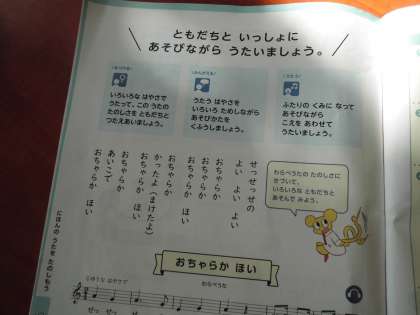 ともだちと いっしょに
あそびながら うたいましょう。
いろいろな はやさで
うたって、この うたの
たのしさを ともだちと
つたえあいましょう。
うたう はやさを
いろいろ ためしながら
あそびかたを
くふうしましょう。
うたう
ふたりの くみに なって
あそびながら
こえを あわせて
うたいましょう。
せっせっせの
よい よい よい
おちゃらか
おちゃらか
おちゃらか ほい
おちゃらか
かったよ(まけたよ)
おちゃらか ほい
おちゃらか
あいこで
おちゃらか ほい
わらべうたの たのしさに
きづいて、
いろいろな ともだちと
あそんで みよう。
にほんの うたを たのしもう
おちゃらか ほい
わらべうた